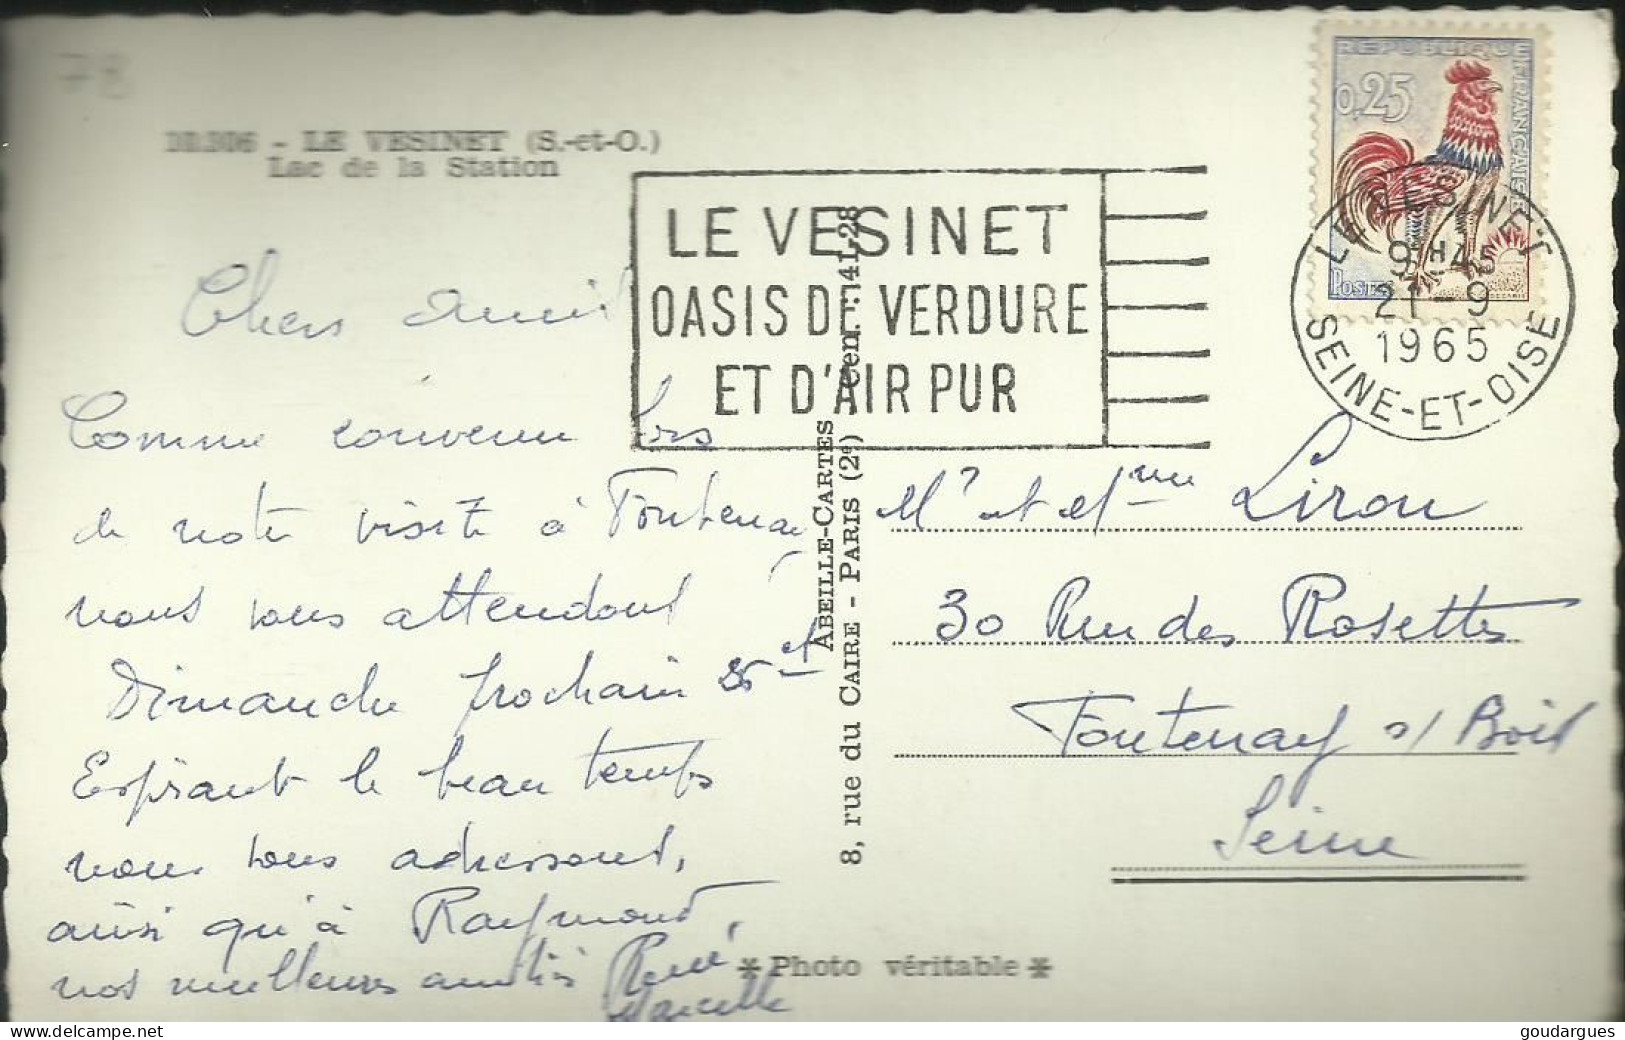 78
10.306 - LE VESINET (S.-et-O.)
Lac de la Station
LE VESINET
OASIS DE VERDURE
ET D'AIR PUR
REPUBLIQUE FRANÇAISE
0,25
POSTES
LE VESINET
9H45
21-9
1965
SEINE-ET-OISE
Chers amis
Comme convenu lors
de notre visite à Fontenay
nous vous attendons
Dimanche prochain 26 et
Espérant le beau temps
nous vous adressons,
ainsi qu'à Raymond,
nos meilleures amitiés René
Marcelle
ABEILLE-CARTES
8, rue du CAIRE - PARIS (2e) Cen. : 41-28
Mr et Mme Lirou
30 Rue des Rosettes
Fontenay s/ Bois
Seine
* Photo véritable *
www.delcampe.net
goudargues